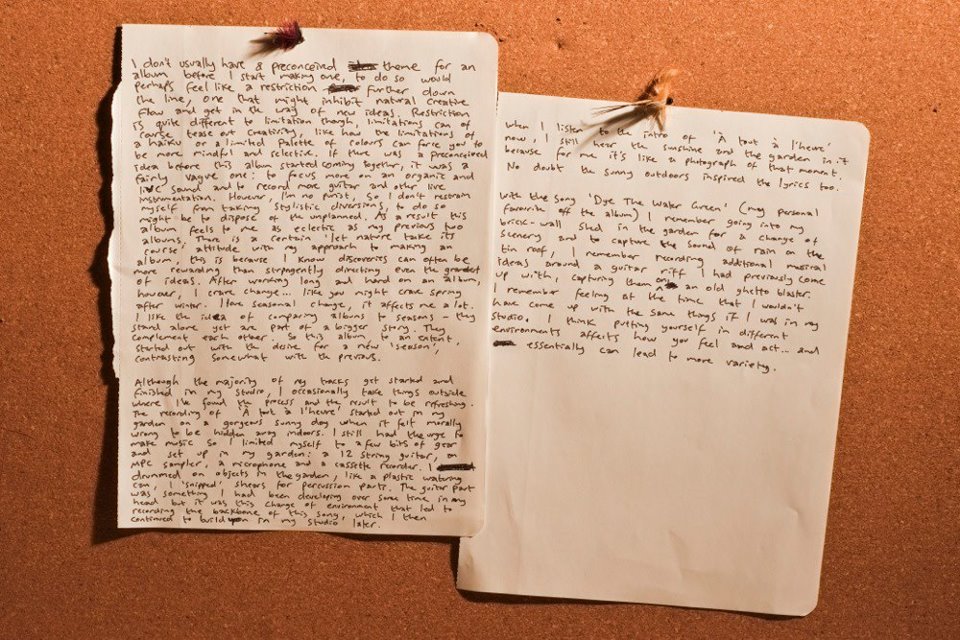 I don't usually have a preconceived theme for an
album before I start making one, to do so would
perhaps feel like a restriction further down
the line, one that might inhibit natural creative
flow and get in the way of new ideas. Restriction
is quite different to limitation though, limitations can of
course tease out creativity, like how the limitations of
a haiku or a limited palette of colours can force you to
be more mindful and selective. If there was a preconceived
idea before this album started coming together, it was a
fairly vague one: to focus more on an organic and
live sound and to record more guitar and other live
instrumentation. However, I'm no purist, so I don't restrain
myself from taking stylistic diversions, to do so
might be to dispose of the unplanned. As a result this
album feels to me as eclectic as my previous two
albums. There is a certain 'let nature take its
course' attitude with my approach to making an
album, this is because I know discoveries can often be
more rewarding than stringently directing even the grandest
of ideas. After working long and hard on an album,
however, I crave change... like you might crave spring
after winter. I love seasonal change, it affects me a lot.
I like the idea of comparing albums to seasons - they
stand alone yet are part of a bigger story. They
complement each other. So this album to an extent,
started out with the desire for a new 'season',
contrasting somewhat with the previous.
Although the majority of my tracks get started and
finished in my studio, I occasionally take things outside
where I've found the process and the result to be refreshing.
The recording of 'À tout à l'heure' started out in my
garden on a gorgeous sunny day when it felt morally
wrong to be hidden away indoors. I still had the urge to
make music so I limited myself to a few bits of gear
and set up in my garden: a 12 string guitar, an
MPC sampler, a microphone and a cassette recorder. I
drummed on objects in the garden, like a plastic watering
can, I 'snipped' shears for percussion parts. The guitar part
was something I had been developing over some time in my
head but it was this change of environment that led to
recording the backbone of this song, which I then
continued to build on in my studio later.
When I listen to the intro of 'À tout à l'heure'
now, I still hear the sunshine and the garden in it
because for me it's like a photograph of that moment.
No doubt the sunny outdoors inspired the lyrics too.
With the song 'Dye The Water Green' (my personal
favourite off the album) I remember going into my
brick-wall shed in the garden for a change of
scenery and to capture the sound of rain on the
tin roof, I remember recording additional musical
ideas around a guitar riff I had previously come
up with, capturing them on an old ghetto blaster.
I remember feeling at the time that I wouldn't
have come up with the same things if I was in my
studio. I think putting yourself in different
environments affects how you feel and act... and
essentially can lead to more variety.